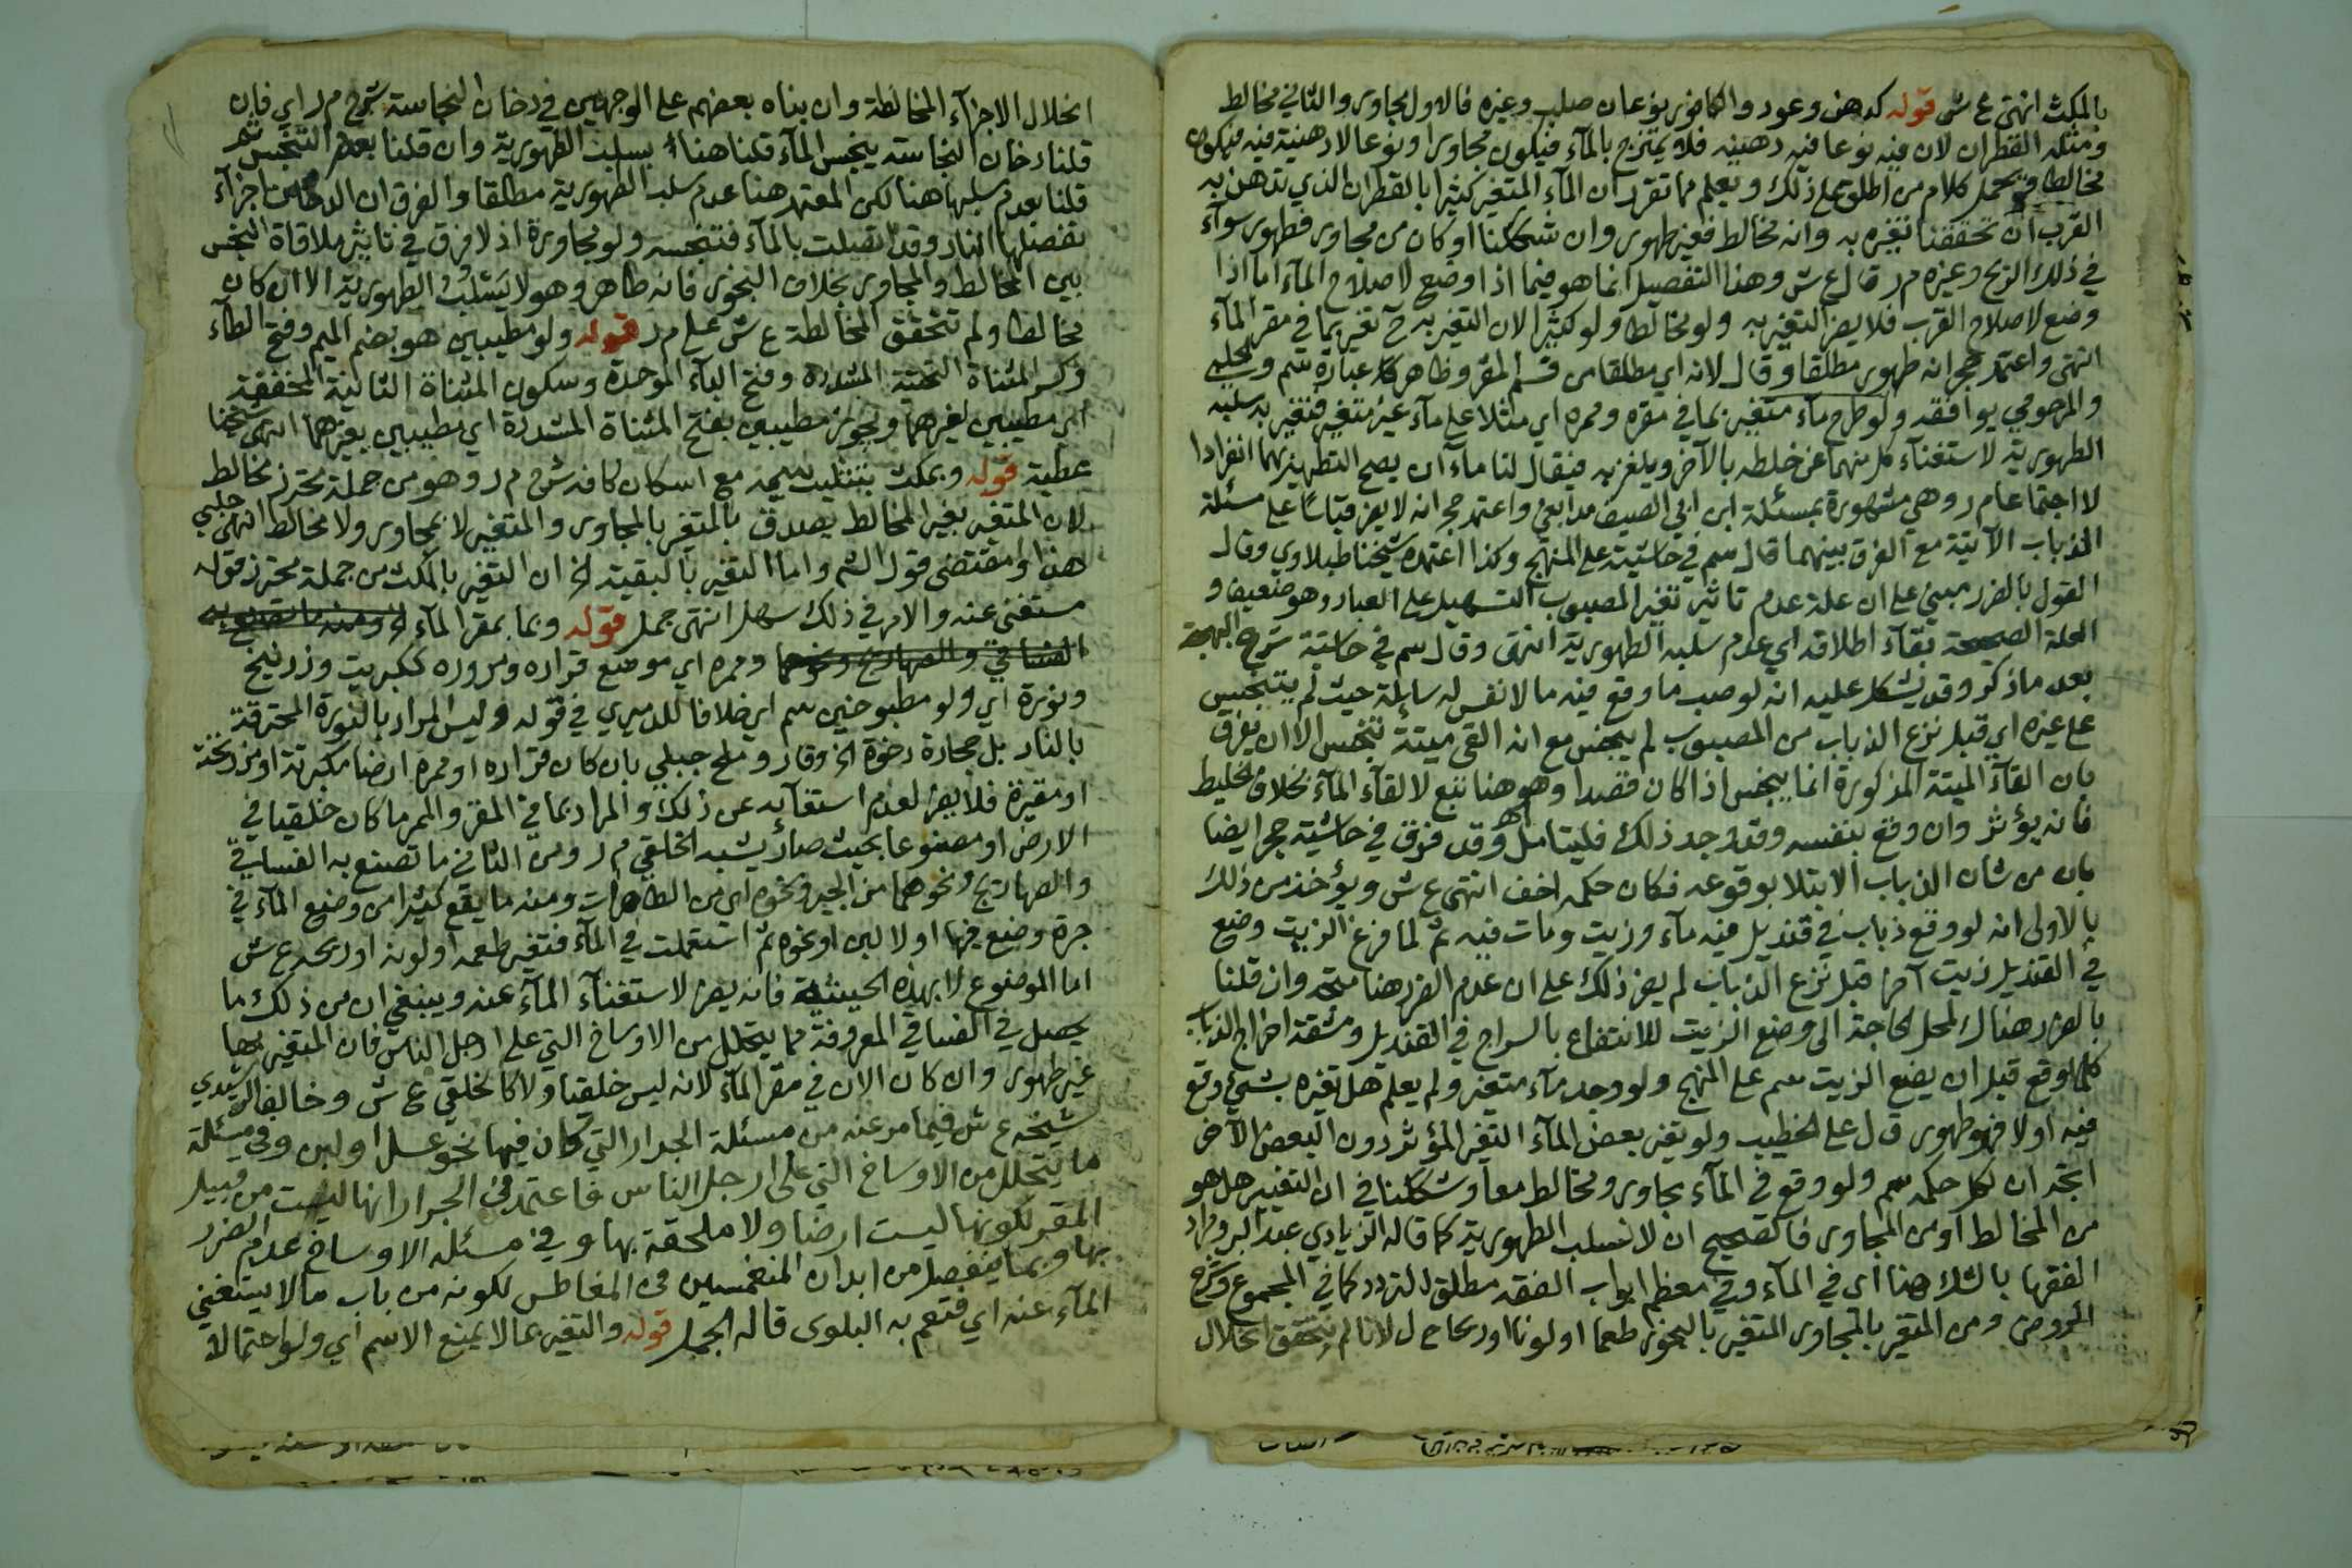 بالمكث انتهى ع ش قوله كدهن وعود والكافور نوعان صلب وغيره فالاول مجاور والثاني مخالط
ومثله القطران لان فيه نوعا فيه دهنية فلا يمتزج بالمآء فيكون مجاورا ونوعا لا دهنية فيه فيكون
مخالطا فيحمل كلام من اطلق على ذلك ويعلم مما تقرر ان المآء المتغير كثيرا بالقطران الذي تدهن به
القرب ان تحققنا تغيره به وانه مخالط فغير طهور وان شككنا او كان من مجاور فطهور سوآء
في ذلك الريح وغيره م ر قال ع ش وهذا التفصيل انما هو فيما اذا وضع لا صلاح المآء اما اذا
وضع لاصلاح القرب فلا يضر التغير به ولو مخالطا ولو كثيرا لان التغير به ح تغير بما في مقر المآء
انتهى واعتمد حجر انه طهور مطلقا وقال لانه اي مطلقا من قسم المقر وظاهر كلا عبارة سم والحلبي
والمرحومي يوافقه ولو طرح مآء متغير بما في مقره وممره اي مثلا على مآء غير متغير فتغير به سلبه
الطهورية لاستغنآء كل منهما عن خلطه بالآخر ويلغز به فيقال لنا مآءان يصح التطهير بهما انفرادا
لا اجتماعا م ر وهي مشهورة بمسئلة ابن ابي الصيف مدابغي واعتمد حجر انه لا يضر قياسا على مسئلة
الذباب الآتية مع الفرق بينهما قال سم في حاشيته على المنهج وكذا اعتمده شيخنا طبلاوي وقال
القول بالضرر مبني على ان علة عدم تاثير تغير المصبوب التسهيل على العباد وهو ضعيف و
العلة الصحيحة بقآء اطلاقه اي عدم سلبه الطهورية انتهى وقال سم في حاشية شرح البهجة
بعد ما ذكر وقد يشكل عليه انه لو صب ما وقع فيه ما لا نفس له سايلة حيث لم يتنجس
على غيره اي قبل نزع الذباب من المصبوب لم ينجس مع انه القى ميتة تنجس الا ان يفرق
بان القآء الميتة المذكورة انما ينجس اذا كان قصدا وهو هنا تبع لالقآء المآء بخلاف الخليط
فانه يؤثر وان وقع بنفسه وقد وجد ذلك فليتامل اه وقد فرق في حاشية حجر ايضا
بان من شان الذباب الابتلا بوقوعه فكان حكمه اخف انتهى ع ش ويؤخذ من ذلك
بالاولى انه لو وقع ذباب في قنديل فيه مآء وزيت ومات فيه ثم لما فرغ الزيت وضع
في القنديل زيت آخر قبل نزع الذباب لم يضر ذلك على ان عدم الضرر هنا متجه وان قلنا
بالضرر هناك لمحل الحاجة الى وضع الزيت للانتفاع بالسراج في القنديل ومشقة اخراج الذباب
كلما وقع قبل ان يضع الزيت سم على المنهج ولو وجد مآء متغير ولم يعلم هل تغيره بشيء وقع
فيه اولا فهو طهور ق ل على الخطيب ولو تغير بعض المآء التغير المؤثر دون البعض الآخر
اتجه ان لكل حكمه سم ولو وقع في المآء مجاور ومخالط معا وشككنا في ان التغير هل هو
من المخالط او من المجاور فالصحيح ان لا نسلب الطهورية كما قاله الزيادي عبد البر ومراد
الفقها بالشك هنا اى في المآء وفي معظم ابواب الفقه مطلق التردد كما في المجموع وشرح
الروض ومن المتغير بالمجاور المتغير بالبخور طعما او لونا او ريحا ح ل لانا لم نتحقق انحلال
انحلال الاجزآء المخالطة وان بناه بعضهم على الوجهين في دخان النجاسة شرح م ر اي فان
قلنا دخان النجاسة ينجس المآء قلنا هنا يسلب الطهورية وان قلنا بعدم التنجس ثم
قلنا بعدم سلبها هنا لكن المعتمد هنا عدم سلب الطهورية مطلقا والفرق ان الدخان اجزآء
تفصلها النار وقد اتصلت بالمآء فتنجسه ولو مجاورة اذ لا فرق في تاثير ملاقاة النجس
بين المخالط والمجاور بخلاف البخور فانه طاهر وهو لا يسلب الطهورية الا ان كان
مخالطا ولم تتحقق المخالطة ع ش على م ر قوله ولو مطيبين هو بضم الميم وفتح الطآء
وكسر المثناة التحتية المشددة وفتح البآء الموحدة وسكون المثناة الثانية المخففة
اي مطيبين لغيرهما ويجوز مطيبين بفتح المثناة المشددة اي مطيبين بغيرهما انتهى شيخنا
عطية قوله وبمكث بتثليث ميمه مع اسكان كافه ش م ر وهو من جملة محترز مخالط
لان المتغير بغير المخالط يصدق بالمتغير بالمجاور والمتغير لا بمجاور ولا مخالط انتهى حلبي
هذا ومقتضى قول الشم واما التغير بالبقية الخ ان التغير بالمكث من جملة محترز قوله
مستغنى عنه والامر في ذلك سهل انتهى جمل قوله وبما بمقر المآء الخ ومنه ما تصنع به
الفساقي والصهاريج ونحوهما وممره اي موضع قراره ومروره ككبريت وزرنيخ
ونورة اي ولو مطبوخين سم اي خلافا للدميري في قوله وليس المراد بالنورة المحترقة
بالنار بل حجارة رخوة الخ وقار وملح جبلي بان كان قراره او ممره ارضا مكبرتة او مزرنخة
او مقيرة فلا يضر لعدم استغنآئه عن ذلك والمراد بما في المقر والممر ما كان خلقيا في
الارض او مصنوعا بحيث صار يشبه الخلقي م ر ومن الثاني ما تصنع به الفساقي
والصهاريج ونحوهما من الجير ونحوه اي من الطاهرات ومنه ما يقع كثيرا من وضع المآء في
جرة وضع فيها اولا لبن او نحوه ثم استعملت في المآء فتغير طعمه او لونه او ريحه ع ش
اما الموضوع لا بهذه الحيثية فانه يضر لاستغنآء المآء عنه وينبغي ان من ذلك ما
يحصل في الفساقي المعروفة مما يتحلل من الاوساخ التي على ارجل الناس فان المتغير بها
غير طهور وان كان الان في مقر المآء لانه ليس خلقيا ولا كالخلقي ع ش وخالف الرشيدي
شيخه ع ش فيما مر عنه من مسئلة الجرار التي كان فيها نحو عسل او لبن وفي مسئلة
ما يتحلل من الاوساخ التي على ارجل الناس فاعتمد في الجرار انها ليست من قبيل
المقر لكونها ليست ارضا ولا ملحقة بها وفي مسئلة الاوساخ عدم الضرر
بها وبما ينفصل من ابدان المنغمسين في المغاطس لكونه من باب ما لا يستغني
المآء عنه اي فتعم به البلوى قاله الجمل قوله والتغير بما لا يمنع الاسم اي ولو احتمالا